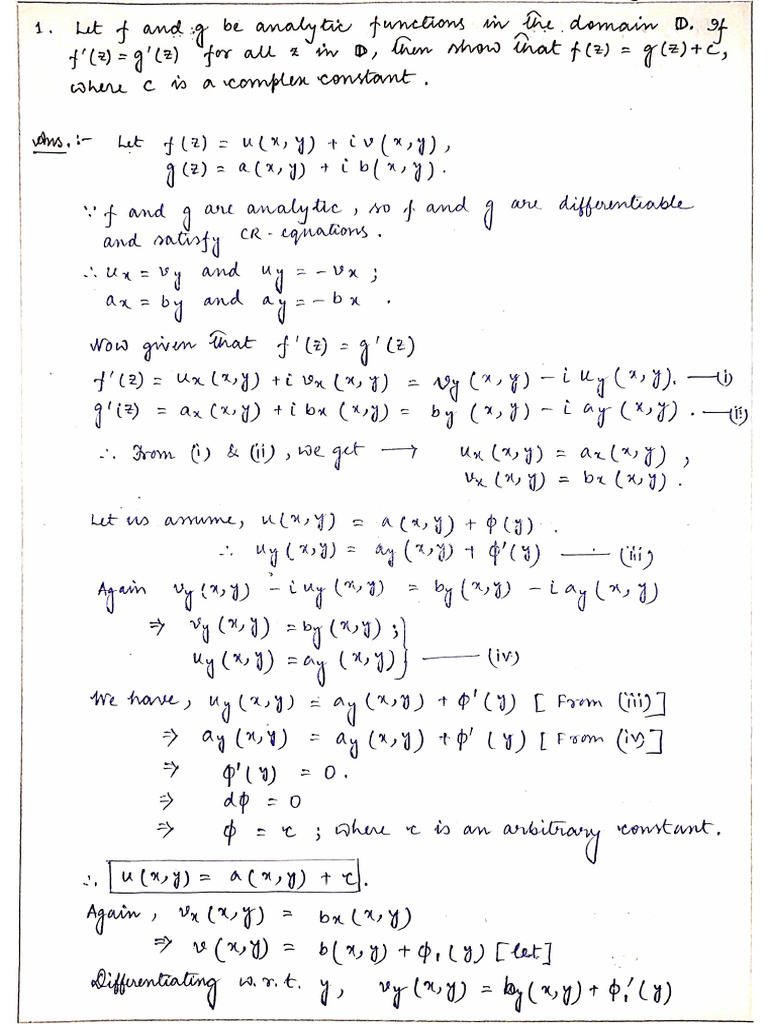 1. Let f and g be analytic functions in the domain D. If
f'(z) = g'(z) for all z in D, then show that f(z) = g(z) + c,
where c is a complex constant.
Ans. :- Let f(z) = u(x,y) + i v(x,y),
g(z) = a(x,y) + i b(x,y).
∵ f and g are analytic, so f and g are differentiable
and satisfy CR-equations.
∴ ux = vy and uy = -vx ;
ax = by and ay = -bx .
Now given that f'(z) = g'(z)
f'(z) = ux(x,y) + i vx(x,y) = vy(x,y) - i uy(x,y). —(i)
g'(z) = ax(x,y) + i bx(x,y) = by(x,y) - i ay(x,y). —(ii)
∴ From (i) & (ii), we get → ux(x,y) = ax(x,y) ,
vx(x,y) = bx(x,y).
Let us assume, u(x,y) = a(x,y) + φ(y) .
∴ uy(x,y) = ay(x,y) + φ'(y) —— (iii)
Again vy(x,y) - i uy(x,y) = by(x,y) - i ay(x,y)
⇒ vy(x,y) = by(x,y) ;
uy(x,y) = ay(x,y) } —— (iv)
We have, uy(x,y) = ay(x,y) + φ'(y) [From (iii)]
⇒ ay(x,y) = ay(x,y) + φ'(y) [From (iv)]
⇒ φ'(y) = 0.
⇒ dφ = 0
⇒ φ = c ; where c is an arbitrary constant.
∴ u(x,y) = a(x,y) + c .
Again, vx(x,y) = bx(x,y)
⇒ v(x,y) = b(x,y) + φ₁(y) [let]
Differentiating w.r.t. y, vy(x,y) = by(x,y) + φ₁'(y)